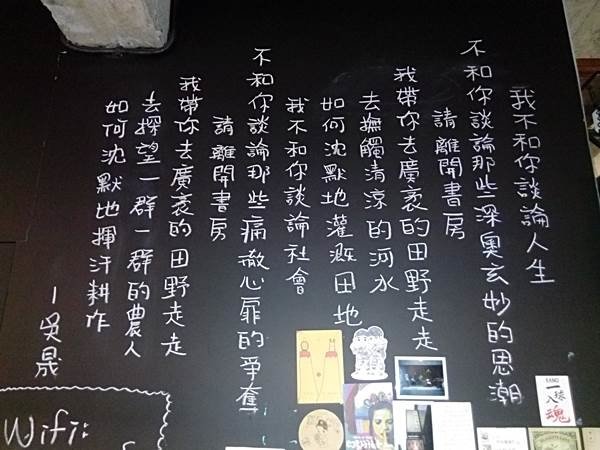 我不和你談論人生
不和你談論那些深奧玄妙的思潮
請離開書房
我帶你去廣袤的田野走走
去撫觸清涼的河水
如何沈默地灌溉田地
我不和你談論社會
不和你談論那些痛徹心扉的爭奪
請離開書房
我帶你去廣袤的田野走走
去探望一群一群的農人
如何沈默地揮汗耕作
—吳晟
Wifi:
一球
入魂